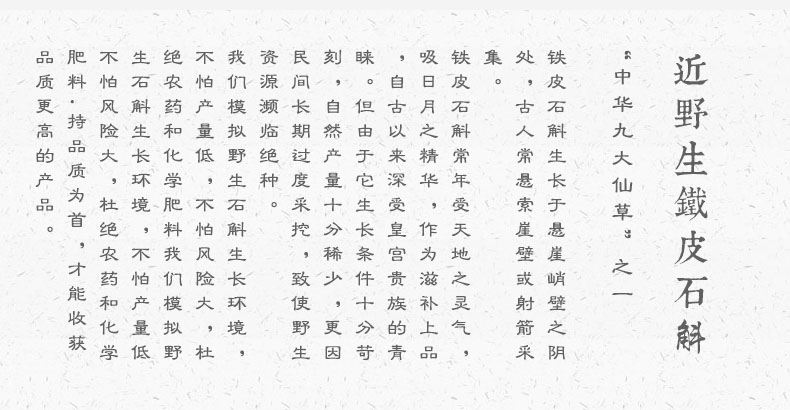 近野生鐵皮石斛
“中华九大仙草”之一
铁皮石斛生长于悬崖峭壁之阴
处，古人常悬索崖壁或射箭采
集。
铁皮石斛常年受天地之灵气，
吸日月之精华，作为滋补上品
，自古以来深受皇宫贵族的青
睐。但由于它生长条件十分苛
刻，自然产量十分稀少，更因
民间长期过度采挖，致使野生
资源濒临绝种。
我们模拟野生石斛生长环境，
不怕产量低，不怕风险大，杜
绝农药和化学肥料我们模拟野
生石斛生长环境，不怕产量低
不怕风险大，杜绝农药和化学
肥料·持品质为首，才能收获
品质更高的产品。